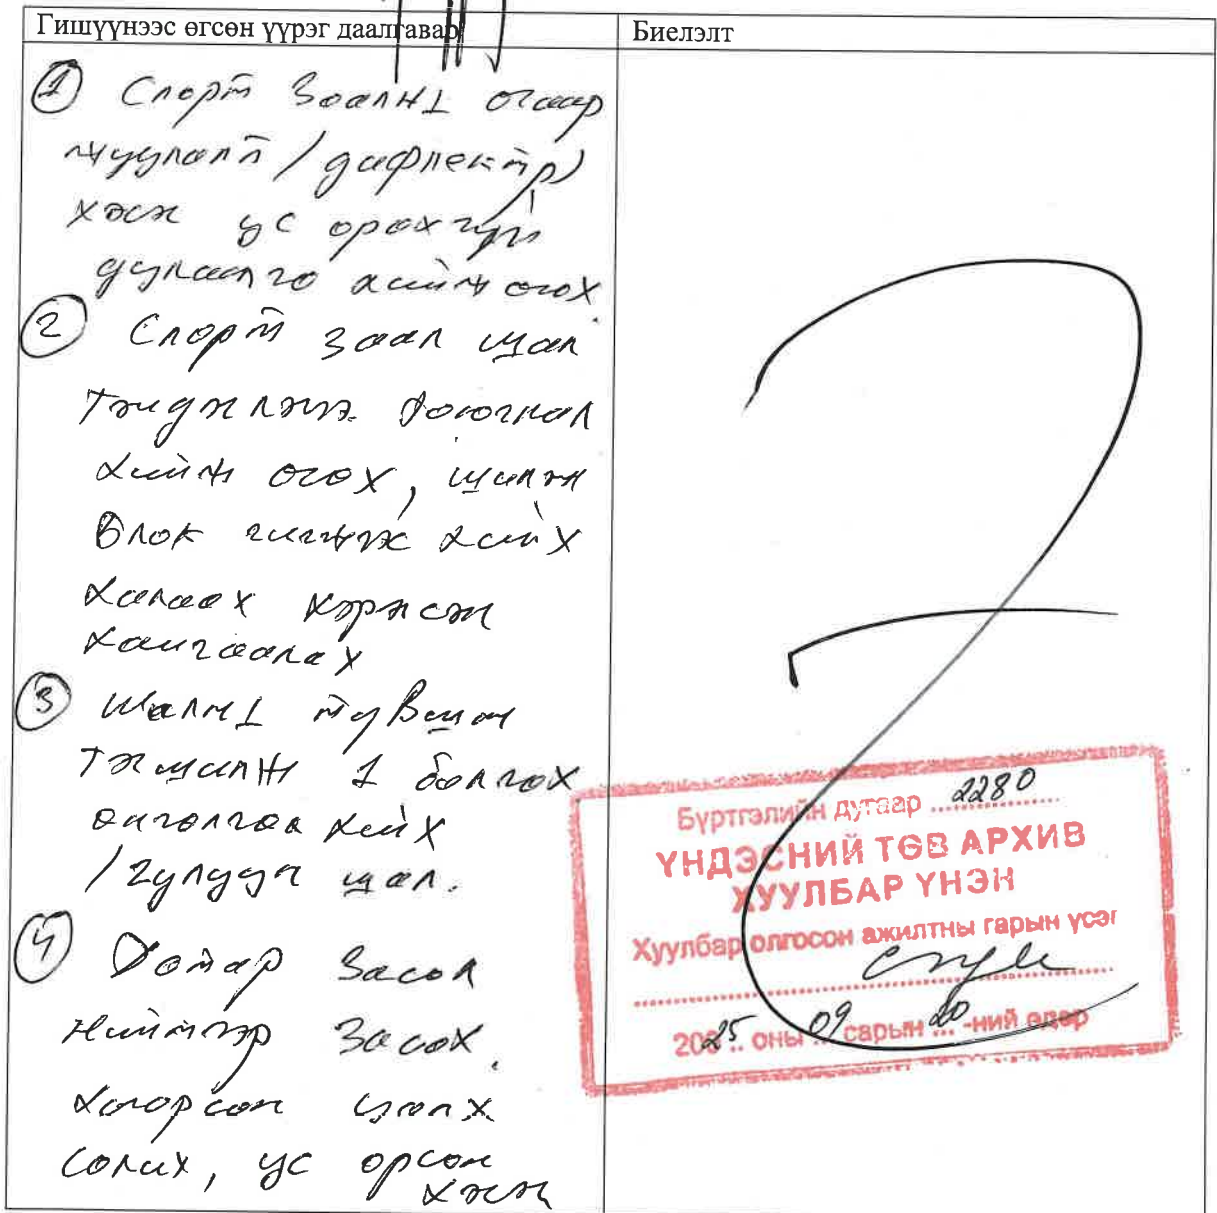 Гишүүнээс өгсөн үүрэг даалгавар
Биелэлт
① Спорт Заалны агаар
жуулалт / дефлектр/
хэсэг ус орохгүй
дулаалга хийж өгөх.
② Спорт заал шал
хийж өгөх, шилэн
блок хийх
халаах хэрэгсэл
хамгаалах
③ Шалны түвшин
тэгшилж 1 болгох
өнгөлгөө хийх
/ гулуун шал.
④ Дотор Засал
нийтээр Засах.
хагарсан цонх
солих, ус орсон
хэсэг
Бүртгэлийн дугаар 2280
ҮНДЭСНИЙ ТӨВ АРХИВ
ХУУЛБАР ҮНЭН
Хуулбар олгосон ажилтны гарын үсэг
2025 оны 09 сарын 20 -ний өдөр